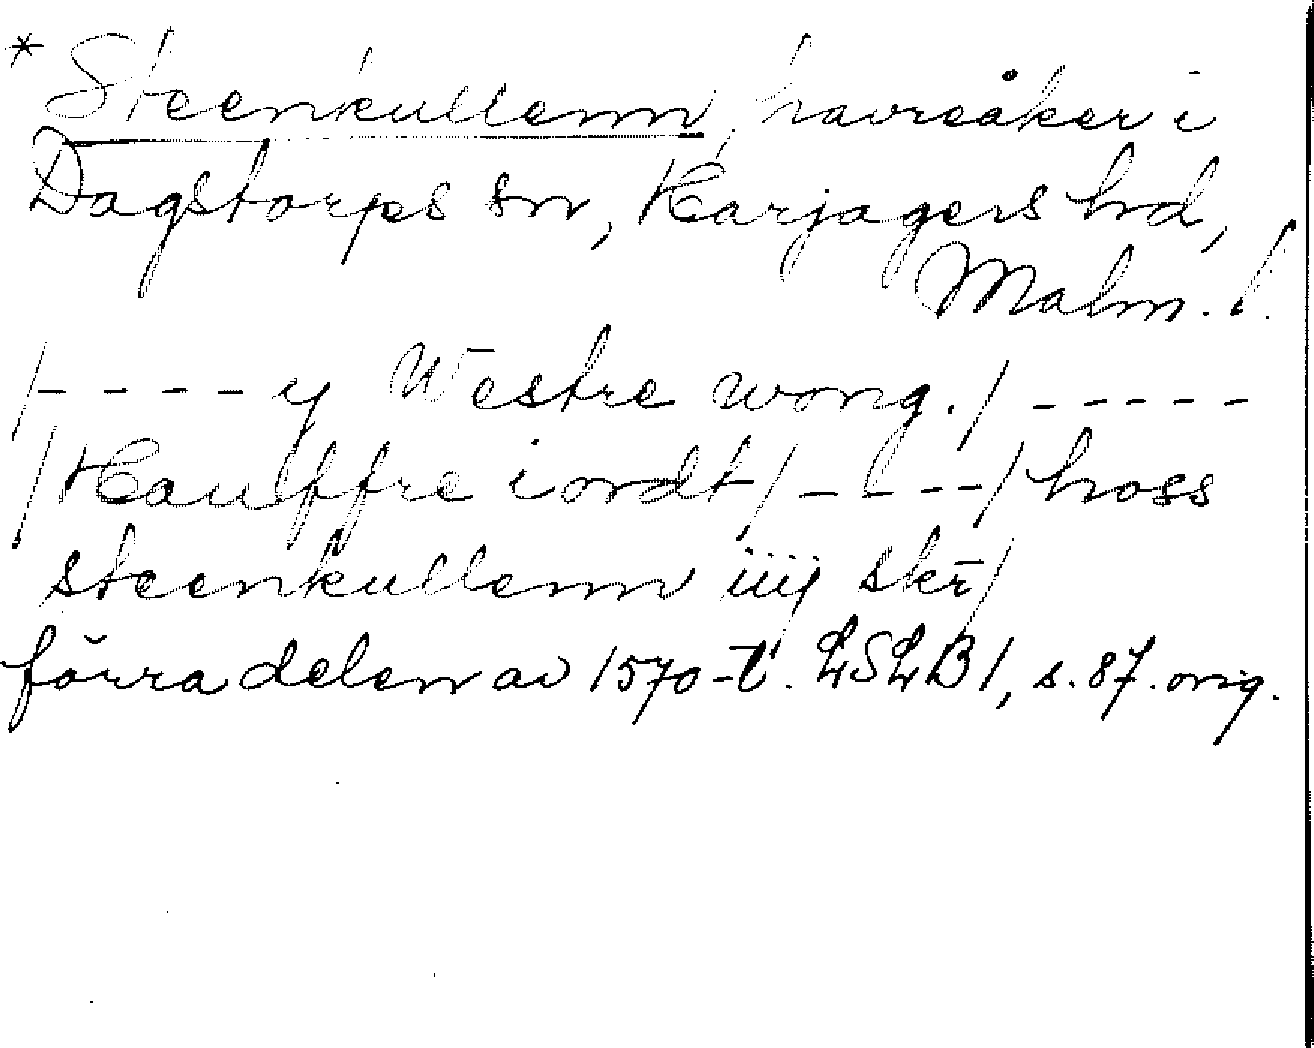 * Steenkullenn, havreåker i
Dagstorps sn, Harjagers hd,
Malm. l.
/- - - - - y Westre wong./ - - - - -
/Hauffre iordt/ - - - - -/ hoss
steenkullenn iiij skr̄/
förra delen av 1570-t. LSLB 1, s. 87. orig.